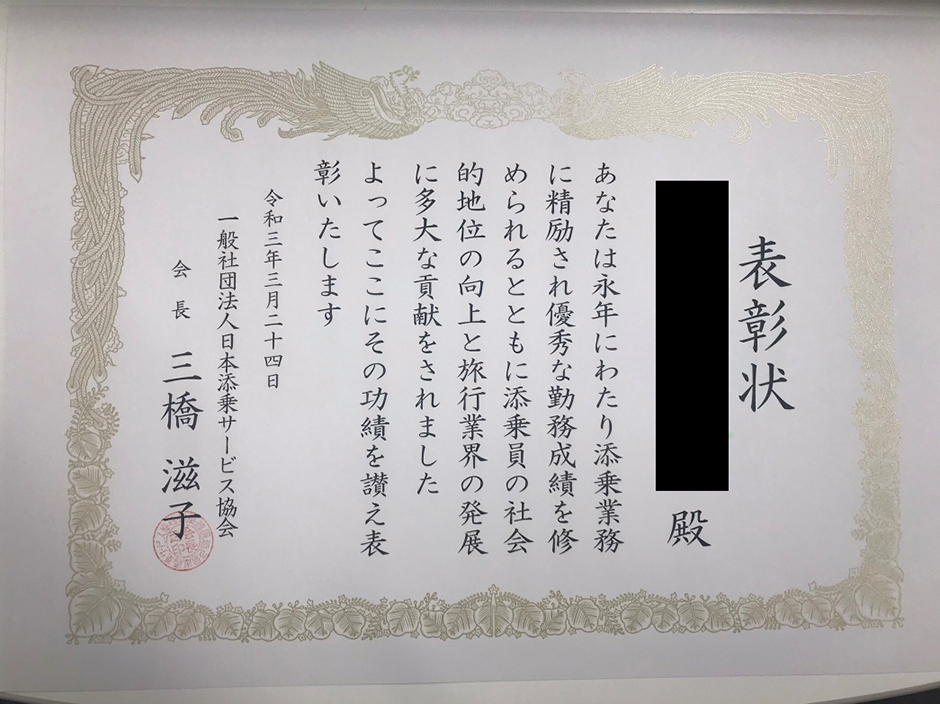 表彰状
殿
あなたは永年にわたり添乗業務
に精励され優秀な勤務成績を修
められるとともに添乗員の社会
的地位の向上と旅行業界の発展
に多大な貢献をされました
よってここにその功績を讃え表
彰いたします
令和三年三月二十四日
一般社団法人日本添乗サービス協会
会長 三橋 滋子